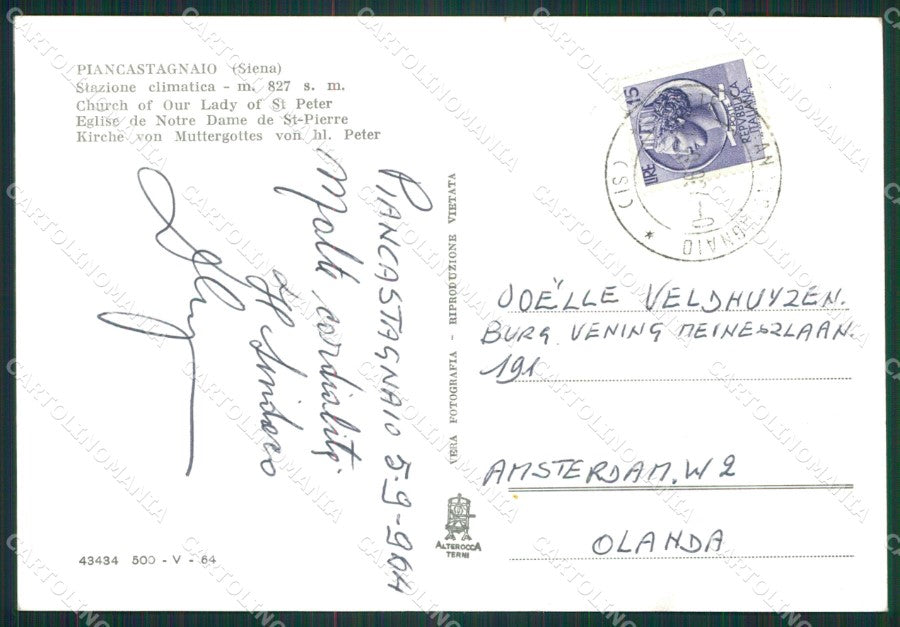 PIANCASTAGNAIO (Siena)
Stazione climatica - m. 827 s. m.
Church of Our Lady of St Peter
Eglise de Notre Dame de St-Pierre
Kirche von Muttergottes von hl. Peter
PIANCASTAGNAIO 5-9-964
Molte cordialità
Il Sindaco
VERA FOTOGRAFIA - RIPRODUZIONE VIETATA
LIRE 15
REPUBBLICA
ITALIANA
(SI)
JOËLLE VELDHUYZEN.
BURG. VENING MEINESZLAAN.
191
AMSTERDAM. W 2
OLANDA
ALTEROCCA
TERNI
43434 500 - V - 64
CARTOLINOMANIA